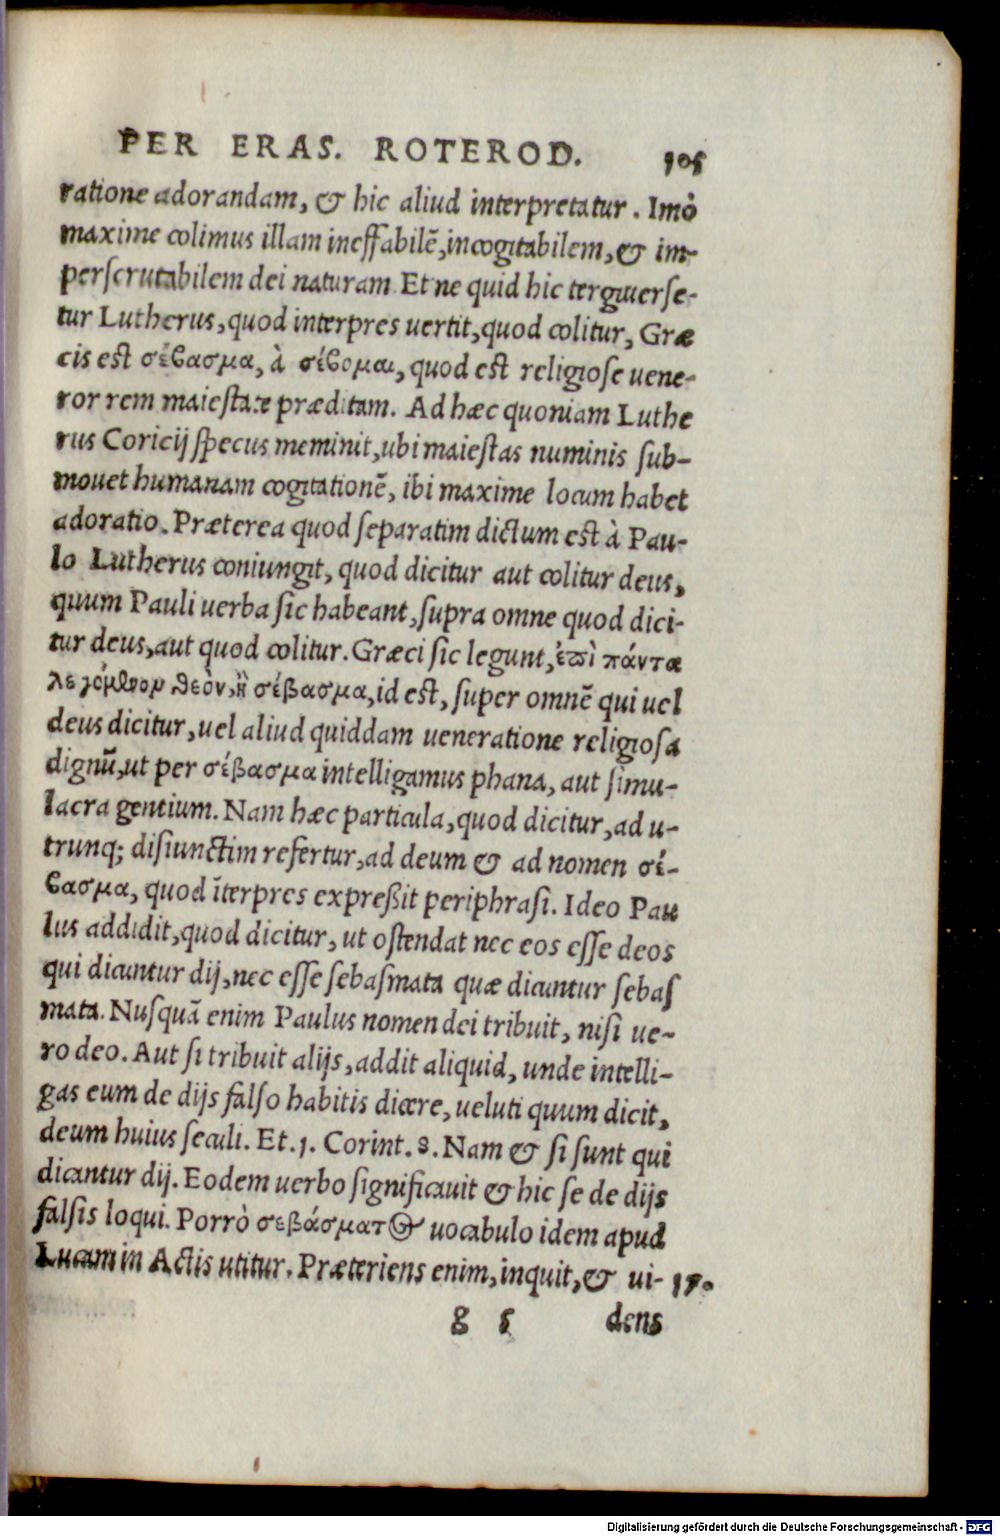 PER ERAS. ROTEROD. 105
ratione adorandam, & hic aliud interpretatur. Imò
maxime colimus illam ineffabilē, incogitabilem, & im-
perscrutabilem dei naturam. Et ne quid hic tergiuerse-
tur Lutherus, quod interpres uertit, quod colitur, Græ
cis est σέβασμα, à σέβομαι, quod est religiose uene-
ror rem maiestate præditam. Ad hæc quoniam Luthe
rus Coricij specus meminit, ubi maiestas numinis sub-
mouet humanam cogitationē, ibi maxime locum habet
adoratio. Præterea quod separatim dictum est à Pau-
lo Lutherus coniungit, quod dicitur aut colitur deus,
quum Pauli uerba sic habeant, supra omne quod dici-
tur deus, aut quod colitur. Græci sic legunt, ἐπὶ πάντα
λεγόμενον θεὸν, ἢ σέβασμα, id est, super omnē qui uel
deus dicitur, uel aliud quiddam ueneratione religiosa
dignū, ut per σέβασμα intelligamus phana, aut simu-
lacra gentium. Nam hæc particula, quod dicitur, ad u-
trunq; disiunctim refertur, ad deum & ad nomen σέ-
βασμα, quod īterpres expreßit periphrasi. Ideo Pau
lus addidit, quod dicitur, ut ostendat nec eos esse deos
qui dicuntur dij, nec esse sebasmata quæ dicuntur sebas
mata. Nusquā enim Paulus nomen dei tribuit, nisi ue-
ro deo. Aut si tribuit alijs, addit aliquid, unde intelli-
gas eum de dijs falso habitis dicere, ueluti quum dicit,
deum huius seculi. Et. 1. Corint. 8. Nam & si sunt qui
dicantur dij. Eodem uerbo significauit & hic se de dijs
falsis loqui. Porrò σεβάσματος uocabulo idem apud
Lucam in Actis utitur. Præteriens enim, inquit, & ui- 17.
g 5 dens
Digitalisierung gefördert durch die Deutsche Forschungsgemeinschaft - DFG